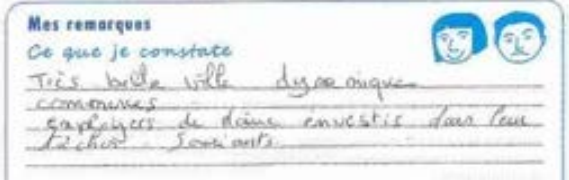 Mes remarques
Ce que je constate
Très belle ville dynamique
communes
employers de dans investis dans leur
tâches Souriants